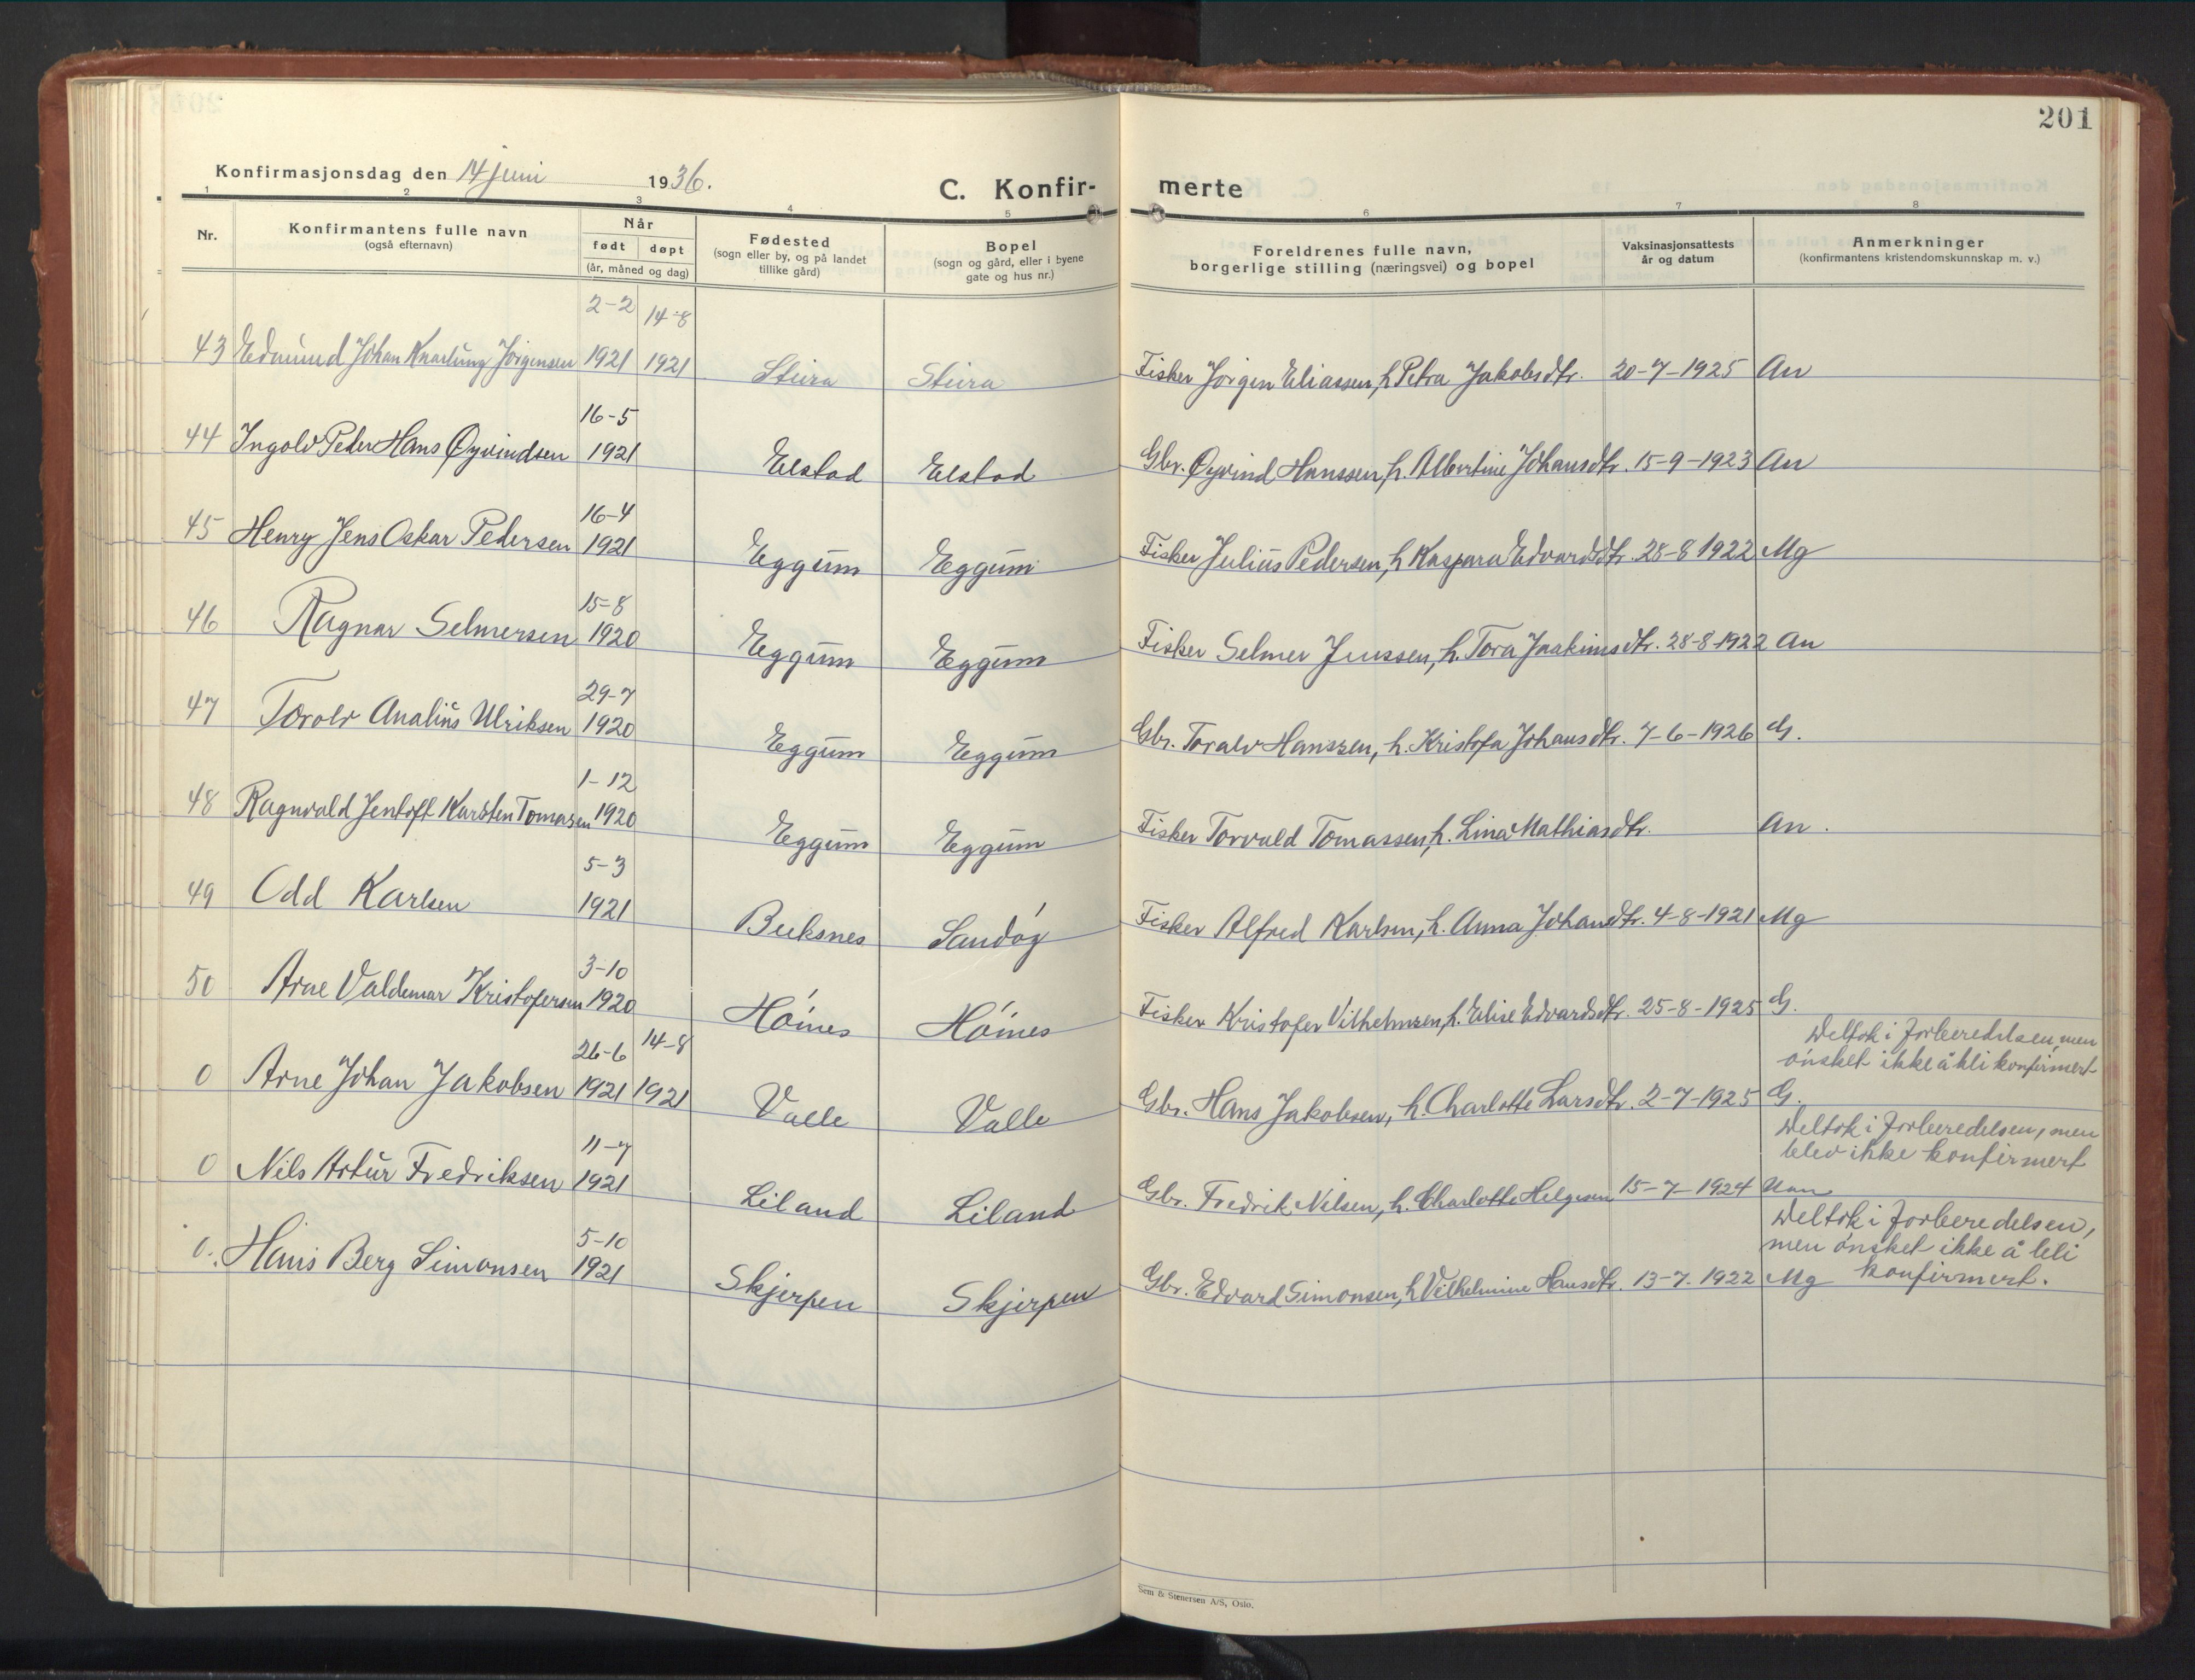 201
Konfirmasjonsdag den 14 juni 1936.
C. Konfir- merte
1 2 3 4 5 6 7 8
Nr.
Konfirmantens fulle navn
(også efternavn)
Når
født døpt
(år, måned og dag)
Fødested
(sogn eller by, og på landet
tillike gård)
Bopel
(sogn og gård, eller i byene
gate og hus nr.)
Foreldrenes fulle navn,
borgerlige stilling (næringsvei) og bopel
Vaksinasjonsattests
år og datum
Anmerkninger
(konfirmantens kristendomskunnskap m. v.)
2-2 14-8
43 Edmund Johan Jörgensen 1921 1921 Stura Stura Fisker Jörgen Eliassen, h Petra Jakobsdtr. 20-7-1925 An
16-5
44 Ingolv Peder Hans Øyvindsen 1921 Elstad Elstad Gbr. Øyvind Hanssen, h. Albertine Johansdtr. 15-9-1923 An
16-4
45 Henry Jens Oskar Pedersen 1921 Eggum Eggum Fisker Julius Pedersen, h Kaspara Edvardsdtr. 28-8 1922 Mg
15-8
46 Ragnar Selmersen 1920 Eggum Eggum Fisker Selmer Jenssen, h. Tora Joakimsdtr. 28-8-1922 An
29-7
47 Torolv Analius Ulriksen 1920 Eggum Eggum Gbr. Toralv Hanssen, h. Kristofa Johansdtr. 7-6-1926 G.
1-12
48 Ragnvald Jentoft Karsten Tomasen 1920 Eggum Eggum Fisker Torvald Tomassen, h. Lina Mathiasdtr. An.
5-3
49 Odd Karlsen 1921 Buksnes Sandöy Fisker Alfred Karlsen, h. Anna Johansdtr. 4-8-1921 Mg
3-10
50 Arne Valdemar Kristofersen 1920 Hömes Hömes Fisker Kristofer Vilhelmsen, h. Elise Edvardsdtr. 25-8-1925 G.
26-6 14-8 Deltok i forberedelsen, men
önsket ikke å bli konfirmert
0 Arne Johan Jakobsen 1921 1921 Valle Valle Gbr. Hans Jakobsen, h. Charlotte Larsdtr. 2-7-1925 G.
11-7 Deltok i forberedelsen, men
blev ikke konfirmert
0 Nils Artur Fredriksen 1921 Liland Liland Gbr. Fredrik Nilsen, h. Charlotte Helgesen 15-7-1924
5-10 Deltok i forberedelsen,
men önsket ikke å bli
0. Hans Berg Simonsen 1921 Skjerpen Skjerpen Gbr. Edvard Simonsen, h Vilhelmine Hansdtr. 13-7-1922 Mg konfirmert.
Sem & Stenersen A/S, Oslo.